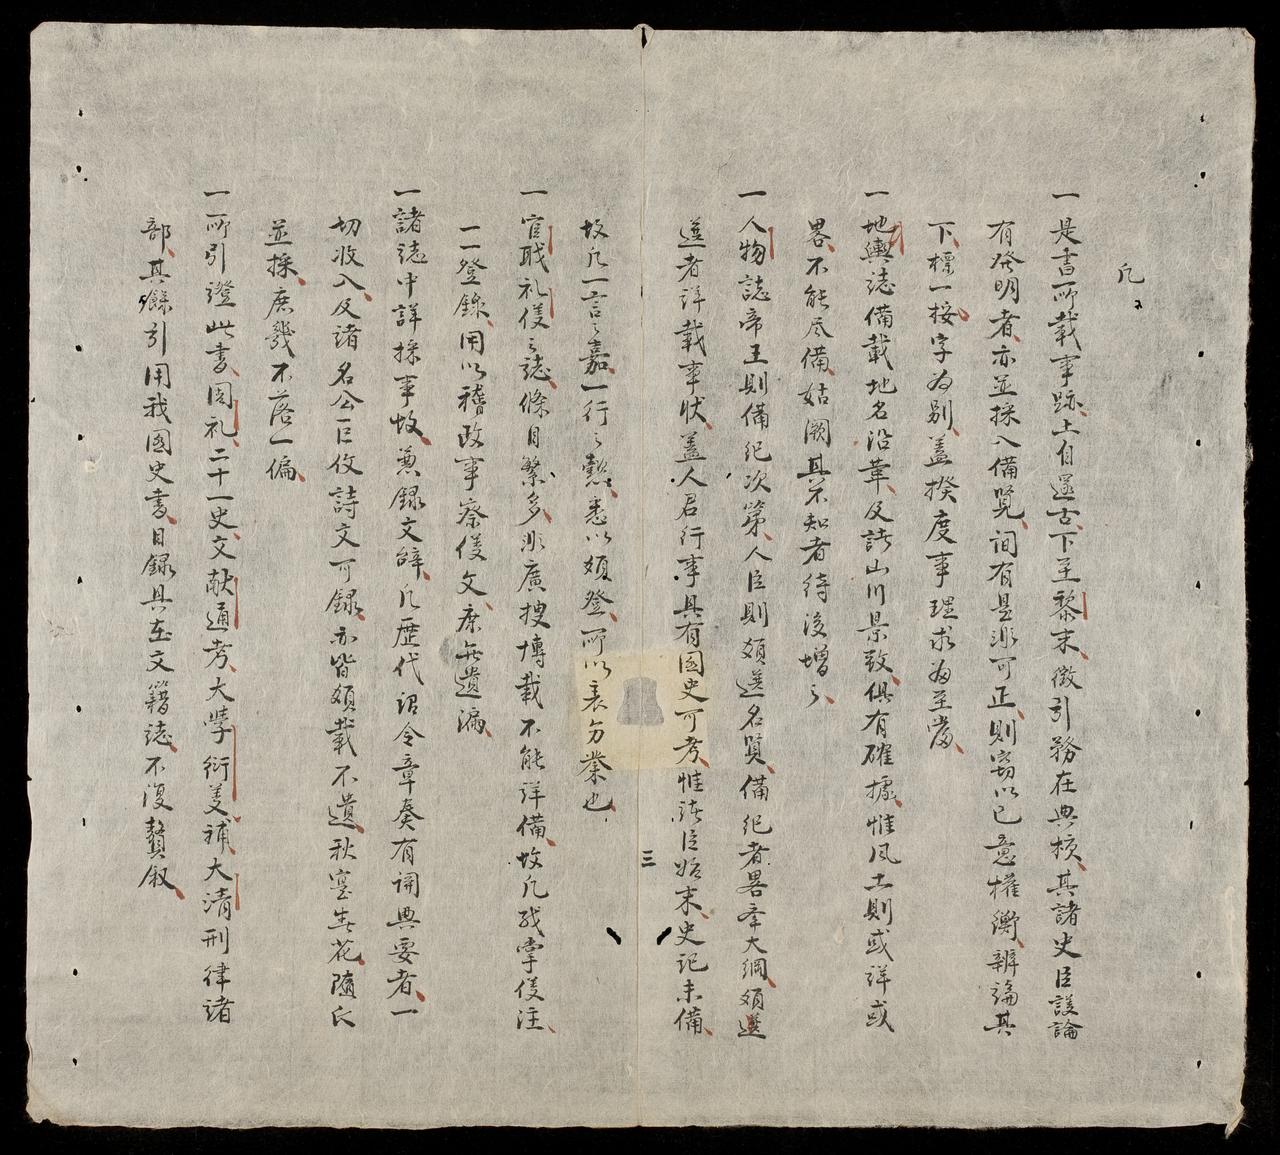 凡
一是書所載事跡上自邃古下至黎末徵引務在典核其諸史臣議論
有發明者亦並採入備覽间有是非可正則竊以已意權衡辨論其
下標一按字为别盖揆度事理求为至當
一地輿誌備載地名沿革及諸山川景致俱有確據惟风土則或詳或
畧不能尽備姑闕其不知者待後增之
一人物誌帝王則備紀次第人臣則頻選名賢備紀者畧举大綱頻選
選者詳載事状盖人君行事具有國史可考惟諸臣始末史記未備
故凡一言之嘉一行之懿悉以頻登所以表勿棄也
一官职礼仪之誌條目繁多非廣搜博載不能詳備故凡残掌仪注
一一登錄用以稽政事察仪文庶无遺漏
一諸誌中詳採事故兼録文辞凡歷代詔令章奏有関典要者一
切收入及諸名公巨佼詩文可録亦皆頻載不遺秋實春花随氏
並採庶幾不落一偏
一所引證此書周礼二十一史文献通考大學衍義補大清刑律諸
部其餘引用我國史書目録具在文籍誌不復贅叙
三